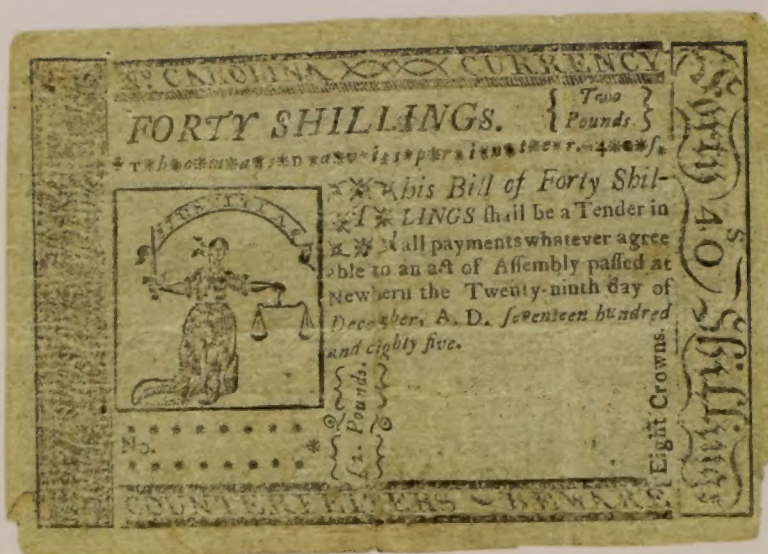 No. CAROLINA CURRENCY
FORTY SHILLINGS.
Two
Pounds
T*h*o*m*a*s*D*a*v*i*s*p*r*i*n*t*e*r.*4*0*ſ.
JUSTITIA
This Bill of Forty Shil-
LINGS ſhall be a Tender in
all payments whatever agree
able to an act of Aſſembly paſſed at
Newbern the Twenty-ninth day of
December, A. D. ſeventeen hundred
and eighty five.
No.
£2. Pounds.
Eight Crowns.
Forty 40 s Shillings
COUNTERFEITERS BEWARE